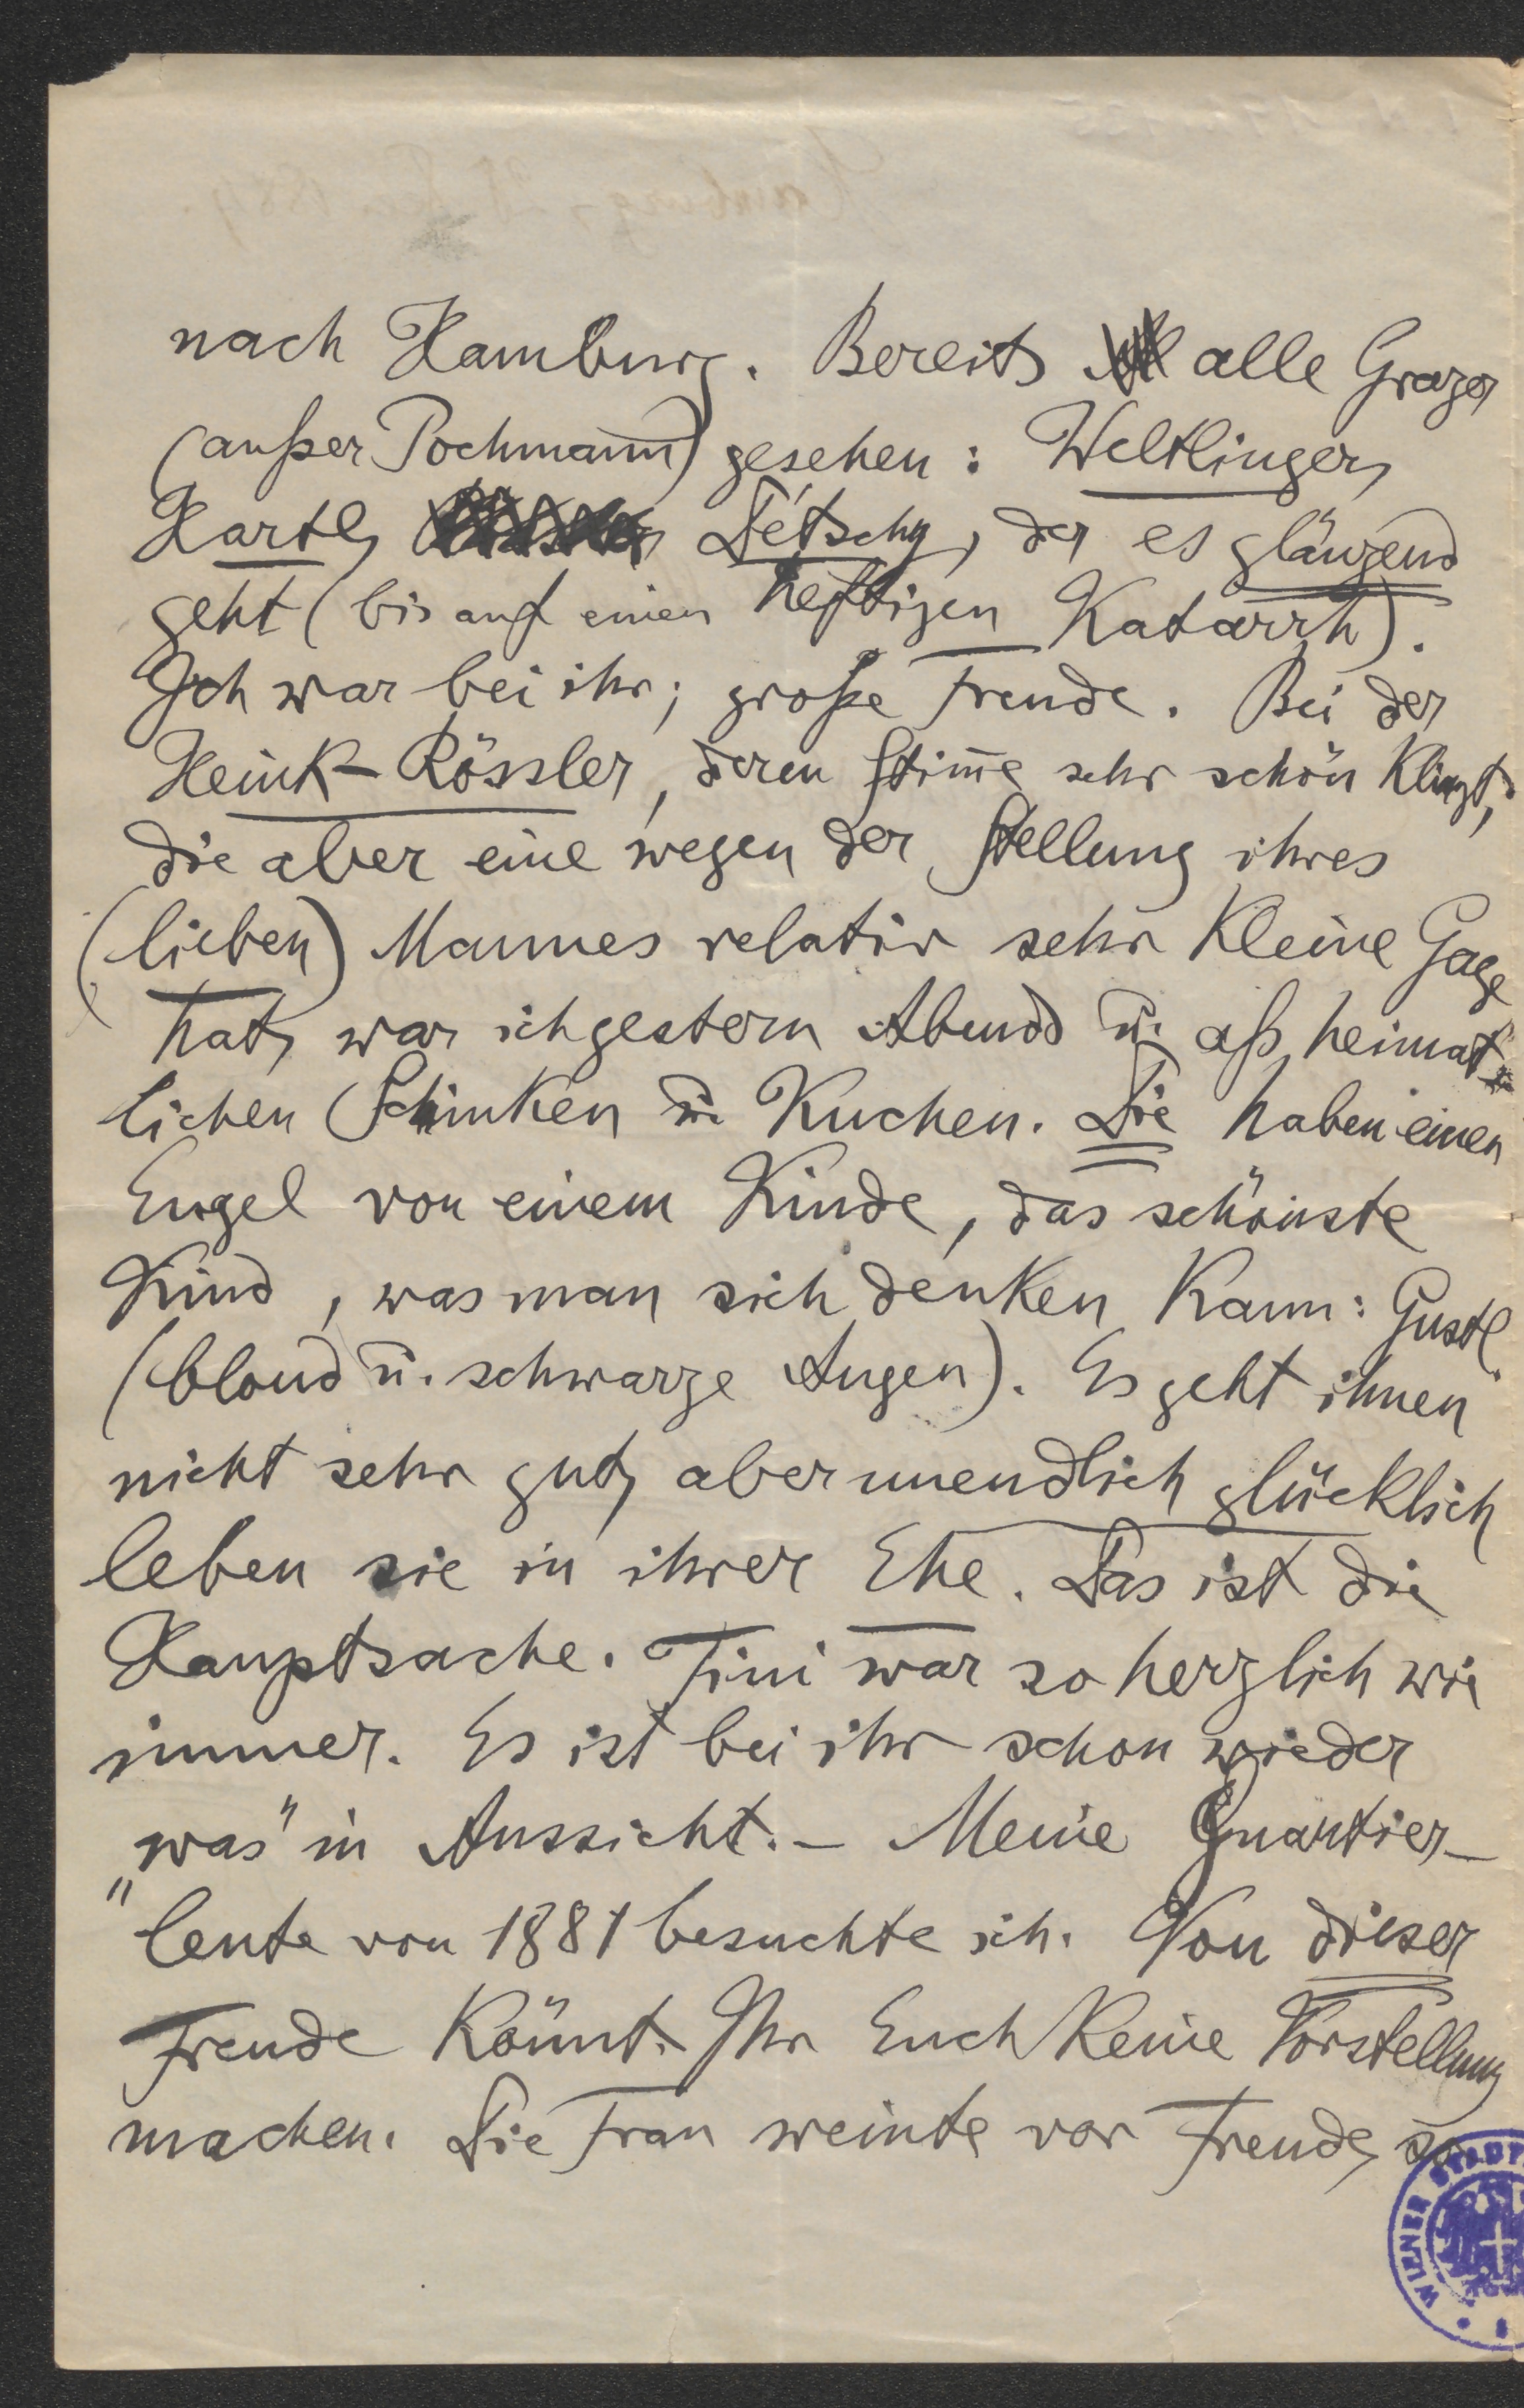 nach Hamburg. Bereits alle Grazer
(außer Pochmann) gesehen: Weltlinger,
Hartl, Détschy, der es glänzend
geht (bis auf einen heftigen Katarrh).
Ich war bei ihr; große Freude. Bei der
Heink-Rössler, deren Stim̄e sehr schön klingt,
die aber eine wegen der Stellung ihres
(lieben) Mannes relativ sehr kleine Gage
hat, war ich gestern Abends u. aß heimat-
lichen Schinken u. Kuchen. Die haben einen
Engel von einem Kinde, das schönste
Kind, was man sich denken kann: Gustl
(blond u. schwarze Augen). Es geht ihnen
nicht sehr gut, aber unendlich glücklich
leben sie in ihrer Ehe. Das ist die
Hauptsache. Tini war so herzlich wie
immer. Es ist bei ihr schon wieder
„was" in Aussicht. – Meine Quartier-
leute von 1881 besuchte ich. Von dieser
Freude könnt Ihr Euch keine Vorstellung
machen. Die Frau weinte vor Freude, so
WIENER STADT